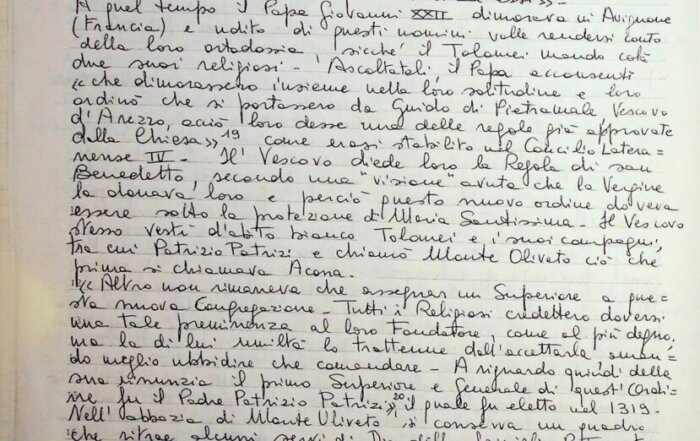 A quel tempo il Papa Giovanni XXII dimorava in Avignone
(Francia) e udito di questi uomini volle rendersi conto
della loro ortodossia sicchè il Tolomei mandò colà
due suoi religiosi - Ascoltatoli, il Papa acconsentì
"che dimorassero insieme nella loro solitudine e loro
ordinò che si portassero da Guido di Pietramale Vescovo
d'Arezzo, acciò loro desse una delle regole già approvate
dalla Chiesa" 19 come erasi stabilito nel Concilio Latera=
nense IV - Il Vescovo diede loro la Regola di san
Benedetto, secondo una "visione" avuta che la Vergine
la donava loro e perciò questo nuovo ordine doveva
essere sotto la protezione di Maria Santissima - Il Vescovo
stesso vestì d'abito bianco Tolomei e i suoi compagni,
tra cui Patrizio Patrizi e chiamò Monte Oliveto ciò che
prima si chiamava Acona.
"Altro non rimaneva che assegnar un Superiore a que=
sta nuova Congregazione - Tutti i Religiosi credettero doversi
una tale preminenza al loro Fondatore, come al più degno,
ma la di lui umiltà lo trattenne dall'accettarla aman=
do meglio ubbidire che comandare - A riguardo quindi della
sua rinunzia il primo Superiore e Generale di quest'Ordi=
ne fu il Padre Patrizio Patrizi" 20 il quale fu eletto nel 1319-
Nell'abbazia di Monte Oliveto si conserva un quadro
che ritrae alcuni servi di Dio della